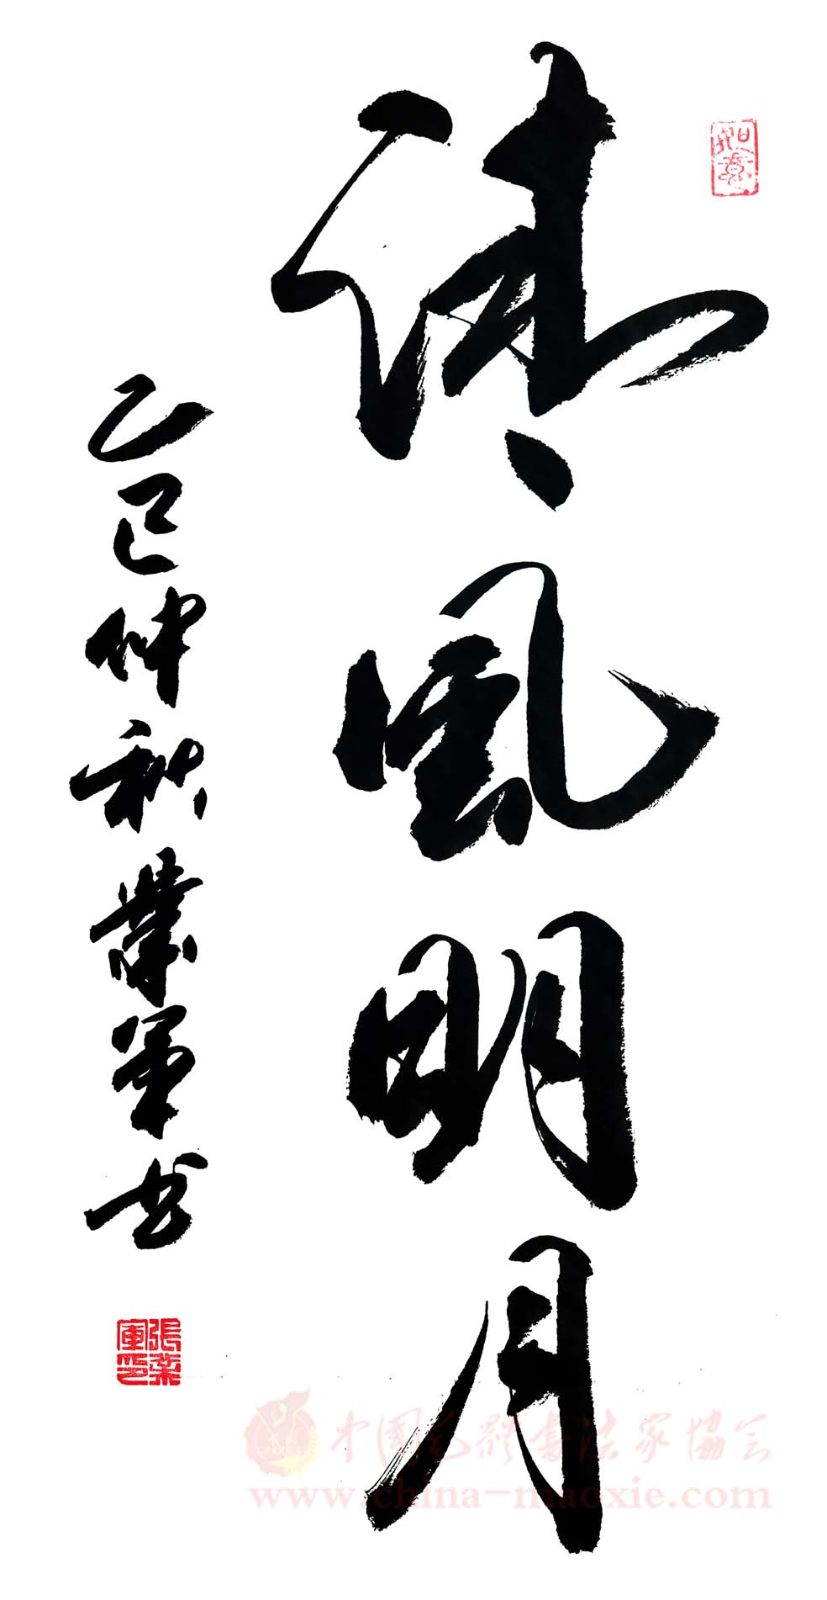 如意
清風明月
乙巳仲秋業軍书
張業軍印
中國毛體書法家協会
www.china-maoxie.com